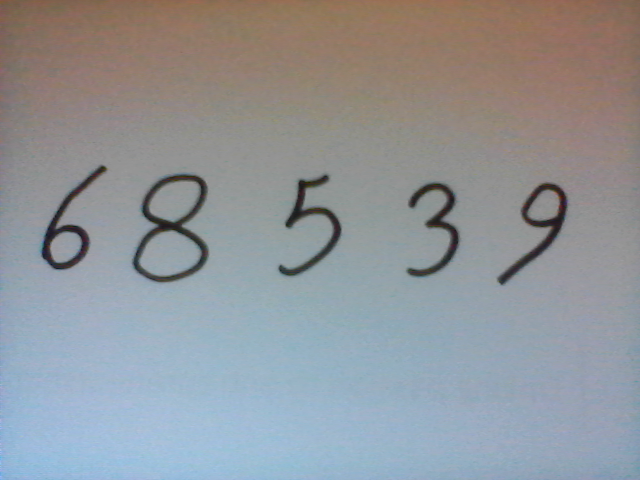 6 8 5 3 9